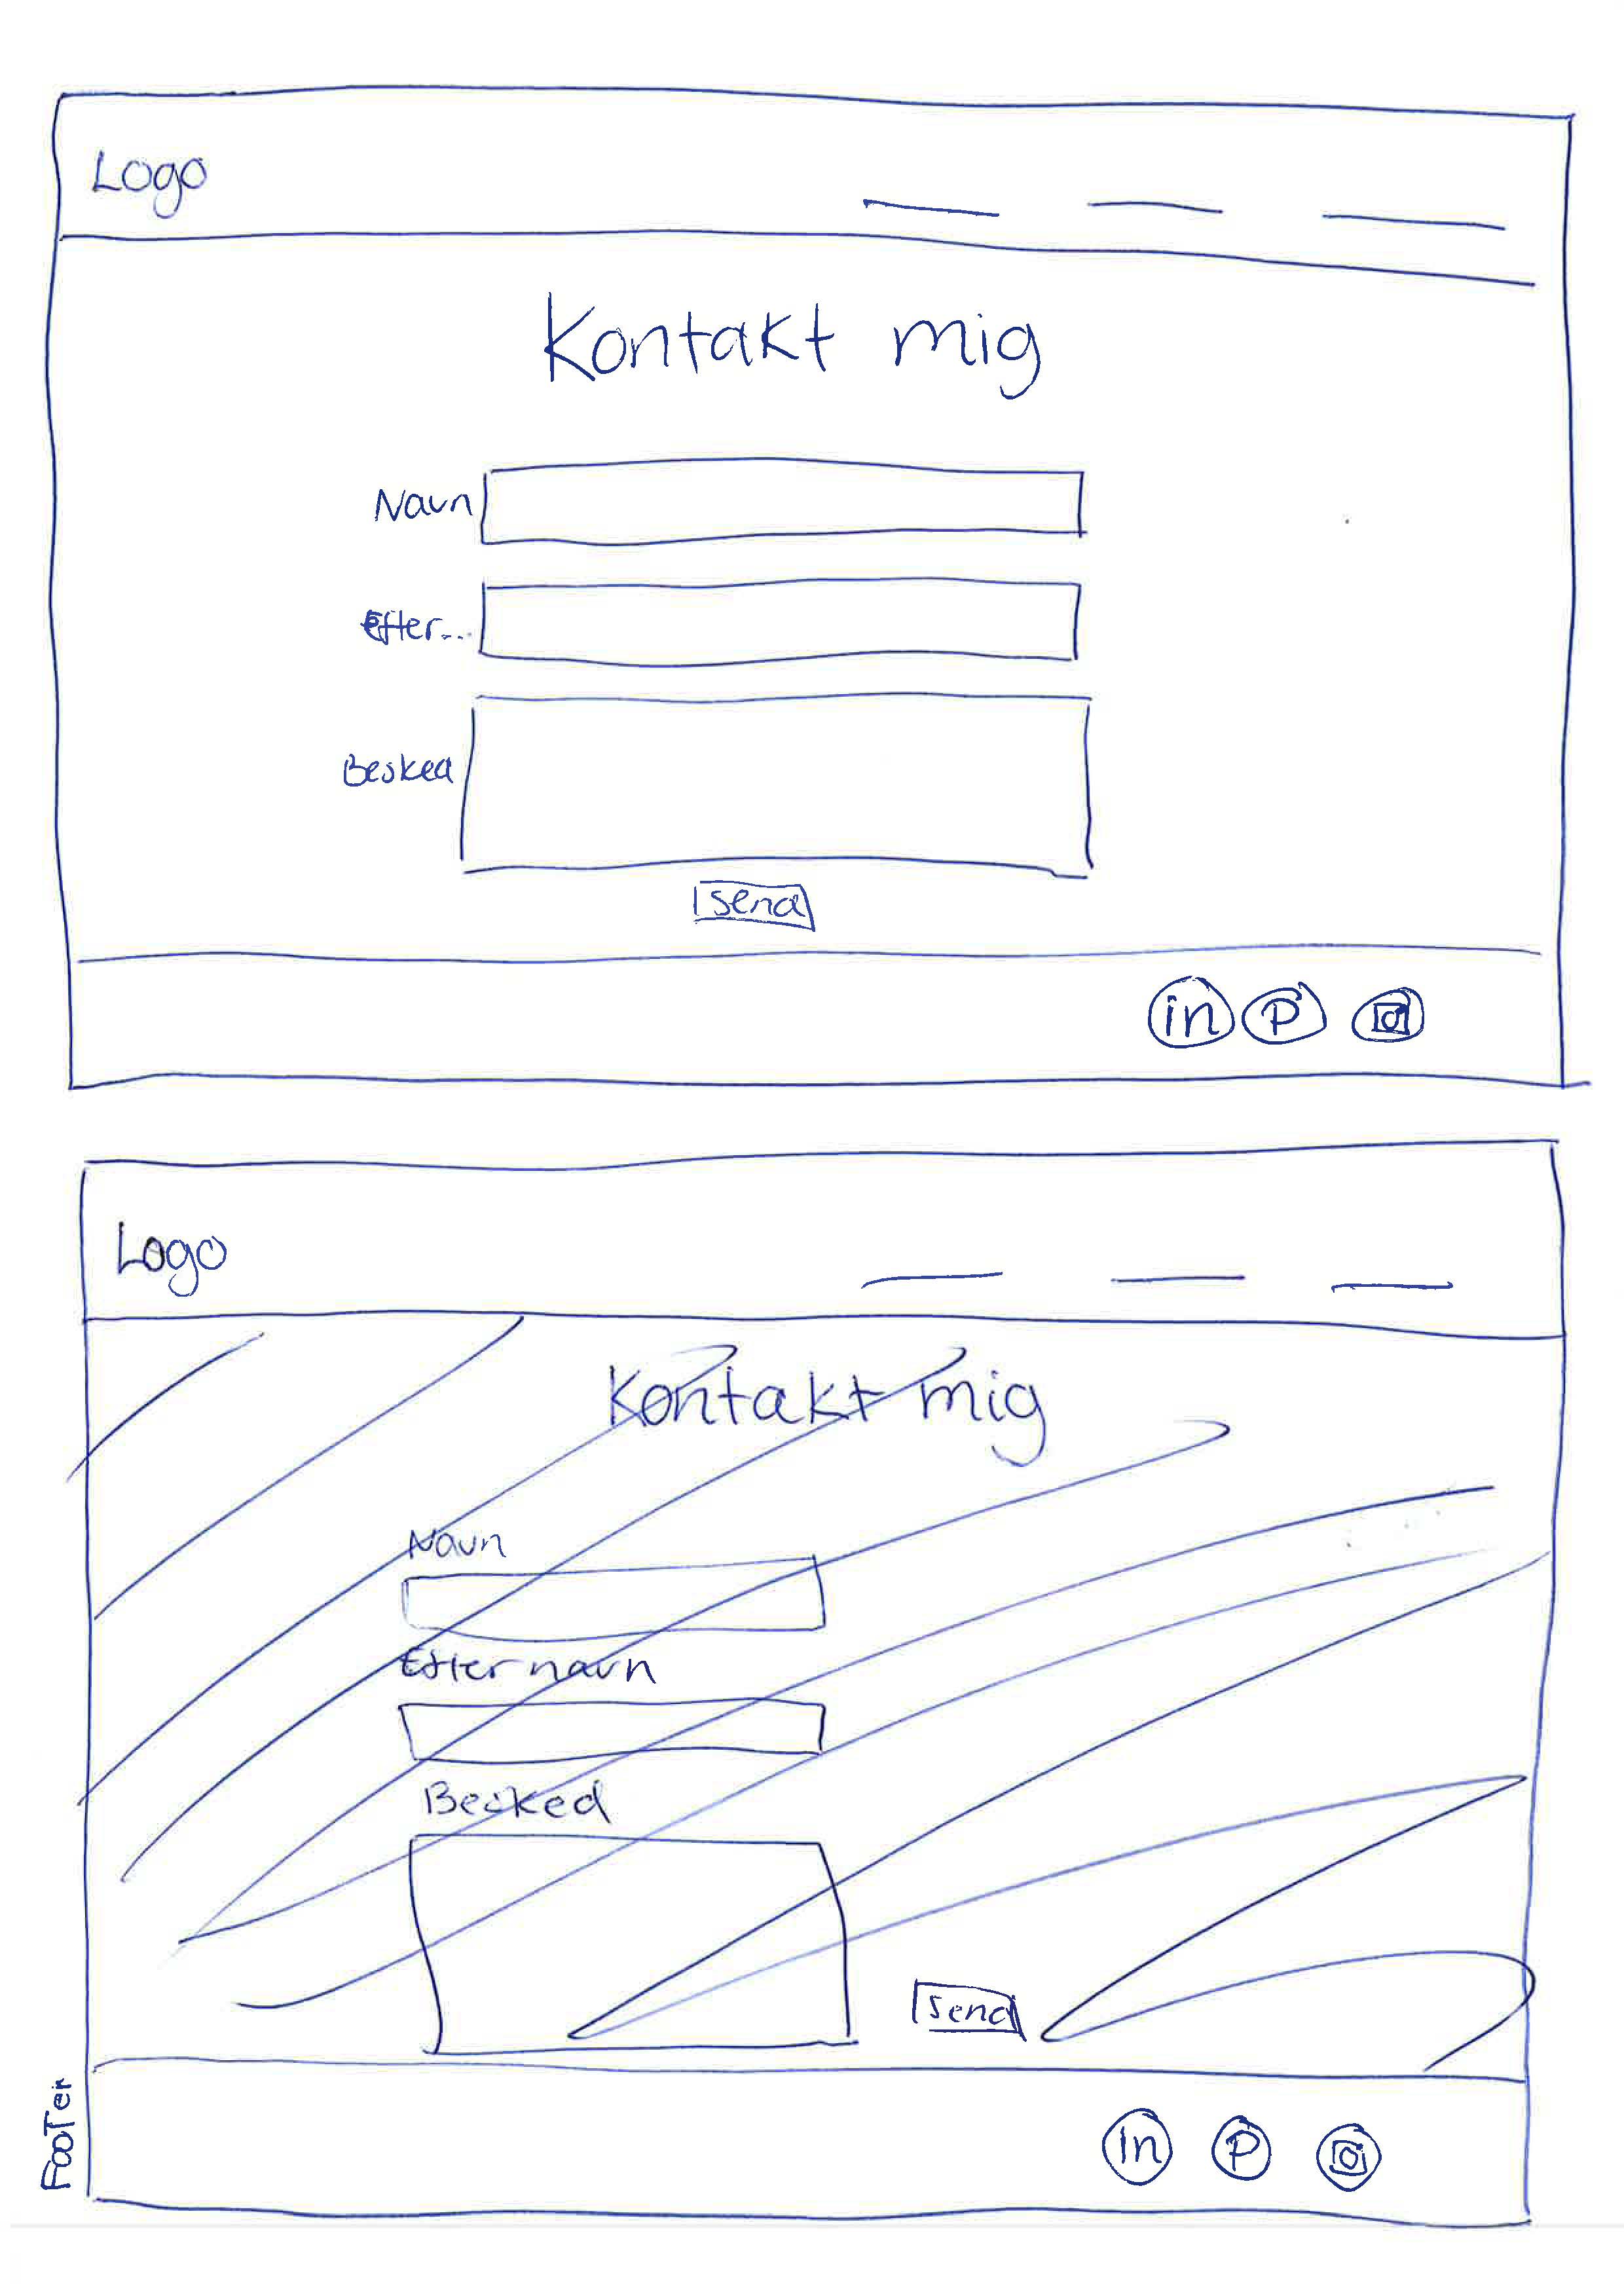 Logo
Kontakt mig
Navn
Efter...
Besked
Send
in P
Logo
Kontakt mig
Navn
Efternavn
Besked
Send
Footer
in P